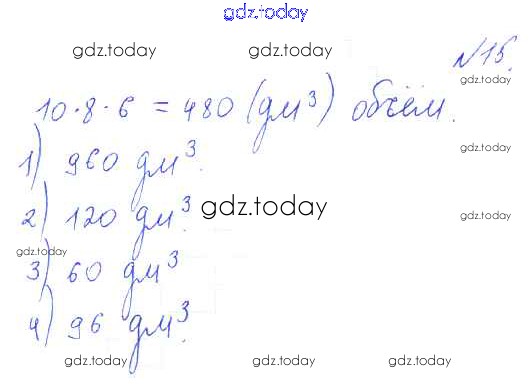 gdz.today
gdz.today gdz.today
№15.
gdz.today
10·8·6 = 480 (дм³) объём.
gdz.today
1) 960 дм³.
2) 120 дм³.
gdz.today
gdz.today
gdz.today
3) 60 дм³
4) 96 дм³.
gdz.today gdz.today gdz.today